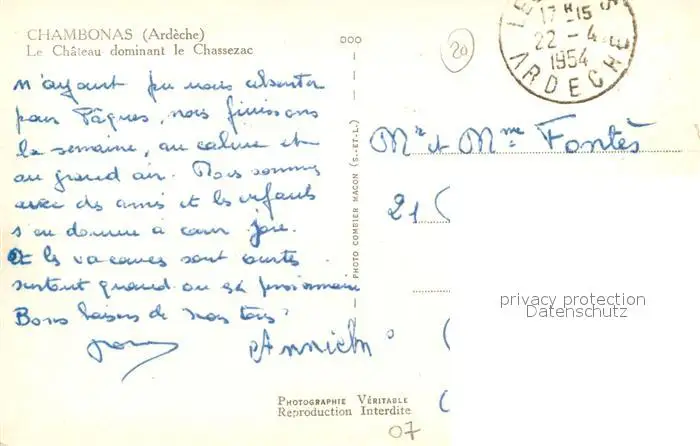 CHAMBONAS (Ardèche)
Le Château dominant le Chassezac
N'ayant pu nous absenter
pour Pâques, nous finissons
la semaine, au calme et
au grand air. Nous sommes
avec des amis et les enfants
s'en donnent à cœur joie.
Et les vacances sont courtes
surtout quand on est
Bons baisers de nous tous
PHOTO COMBIER MACON (S.-ET-L.)
20
17 H 15
22 - 4
1954
ARDECHE
Mr et Mme Fontès
21
privacy protection
Datenschutz
PHOTOGRAPHIE VÉRITABLE
Reproduction Interdite
07